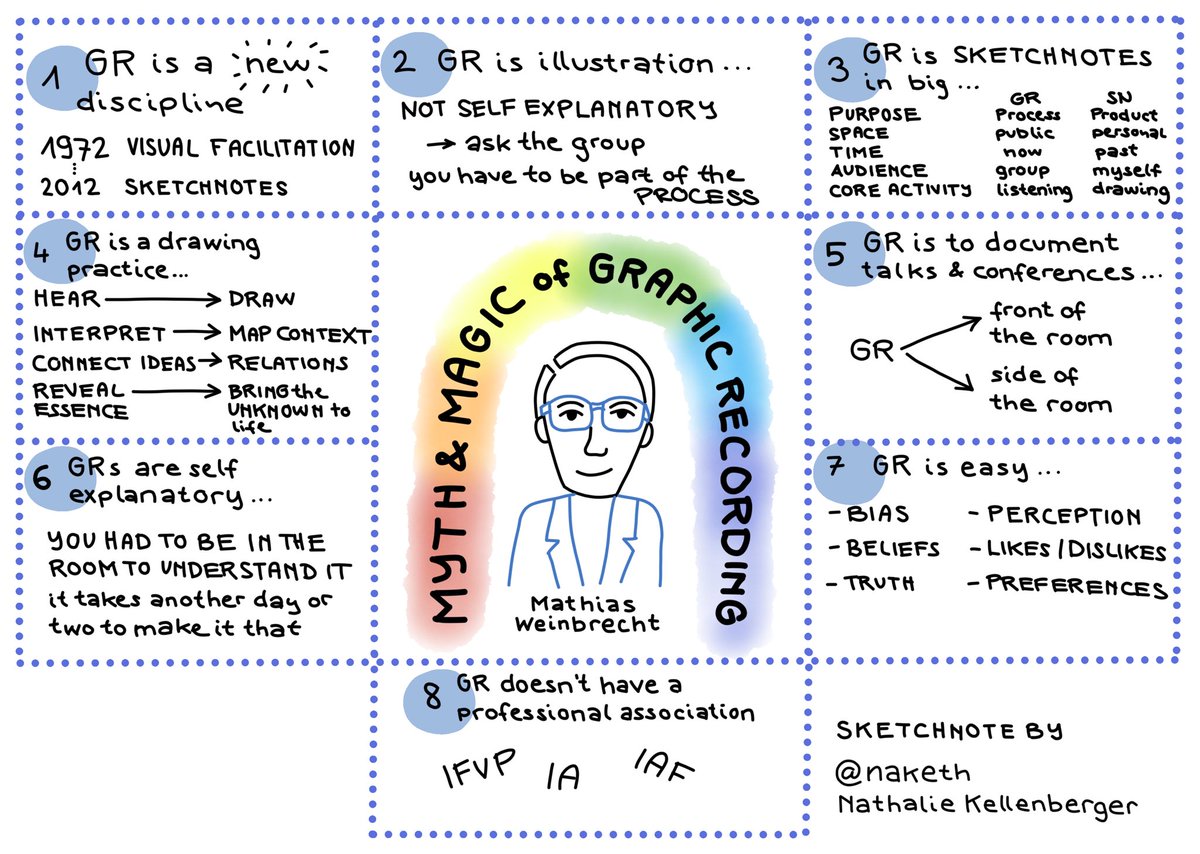 1 GR is a new
discipline
1972 VISUAL FACILITATION
2012 SKETCHNOTES
2 GR is illustration ...
NOT SELF EXPLANATORY
→ ask the group
you have to be part of the
PROCESS
3 GR is SKETCHNOTES
in big ...
GR SN
PURPOSE Process Product
SPACE public personal
TIME now past
AUDIENCE group myself
CORE ACTIVITY listening drawing
4 GR is a drawing
practice...
HEAR → DRAW
INTERPRET → MAP CONTEXT
CONNECT IDEAS → RELATIONS
REVEAL → BRING the
ESSENCE UNKNOWN to
life
MYTH & MAGIC of GRAPHIC RECORDING
Mathias
Weinbrecht
5 GR is to document
talks & conferences ...
GR
front of
the room
side of
the room
6 GRs are self
explanatory ...
YOU HAD TO BE IN THE
ROOM TO UNDERSTAND IT
it takes another day or
two to make it that
7 GR is easy ...
- BIAS - PERCEPTION
- BELIEFS - LIKES / DISLIKES
- TRUTH - PREFERENCES
8 GR doesn't have a
professional association
IFVP IA IAF
SKETCHNOTE BY
@naketh
Nathalie Kellenberger